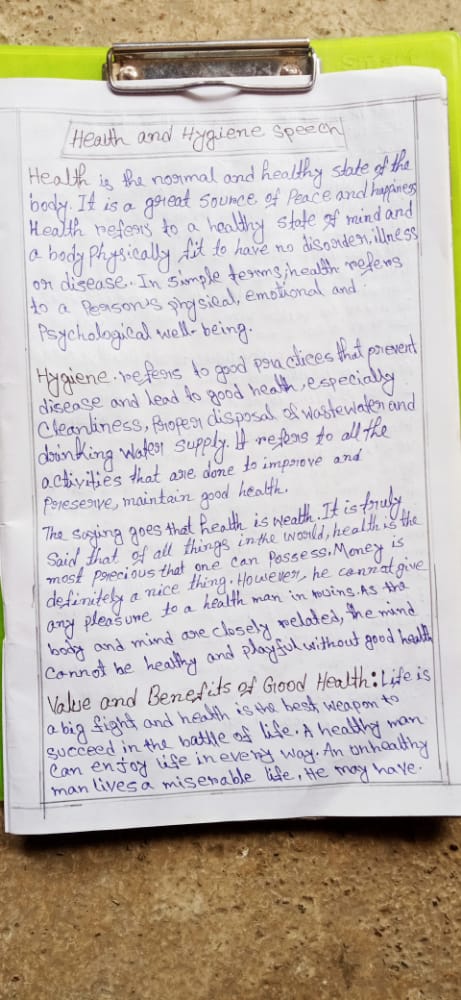 Health and Hygiene speech
Health is the normal and healthy state of the
body. It is a great source of Peace and happiness
Health refers to a healthy state of mind and
a body physically fit to have no disorder, illness
or disease. In simple terms, health refers
to a Person's physical, emotional and
Psychological well-being.
Hygiene. refers to good practices that prevent
disease and lead to good health, especially
Cleanliness, proper disposal of wastewater and
drinking water supply. It refers to all the
activities that are done to improve and
Preserve, maintain good health.
The saying goes that health is wealth. It is truly
Said, that of all things in the world, health is the
most precious that one can Possess. Money is
definitely a nice thing. However, he cannot give
any pleasure to a health man in ruins. As the
body and mind are closely related, the mind
Cannot be healthy and playful without good health
Value and Benefits of Good Health: Life is
a big fight and health is the best weapon to
succeed in the battle of life. A healthy man
Can enjoy life in every way. An unhealthy
man lives a miserable life. He may have.